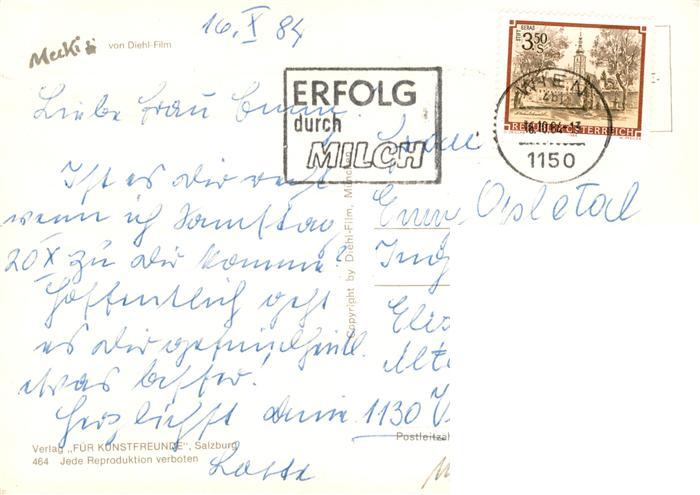 16. X 84
Mecki
von Diehl-Film
Liebe Frau Emmi
Ist es dir recht
wenn ich Samstag
20 X zu dir komme?
Hoffentlich geht
es dir gesundheitl.
etwas besser!
Herzlichst deine
Lotte
Verlag „FÜR KUNSTFREUNDE", Salzburg
464 Jede Reproduktion verboten
Copyright by Diehl-Film, München
ERFOLG
durch
MILCH
STIFT GERAS
3.50 S
REPUBLIK ÖSTERREICH
WIEN
16.10.84-13
1150
Frau
Emmi Opletal
1130
Postleitzahl